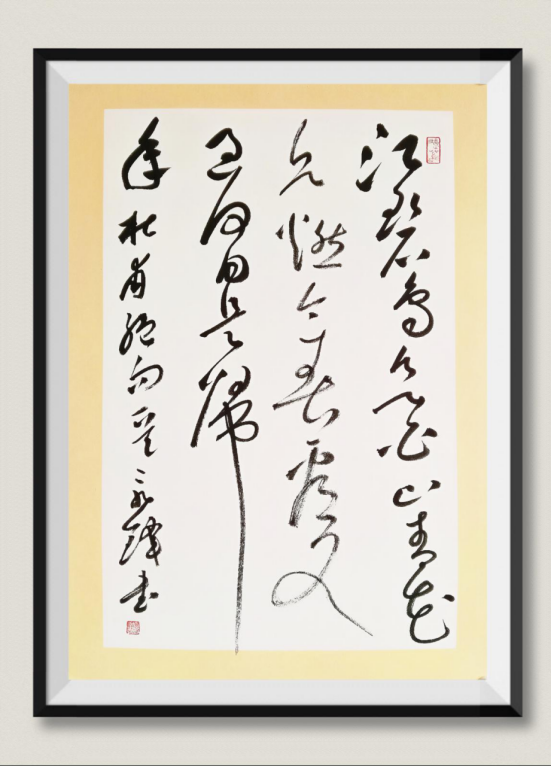 江碧鸟逾白山青花
欲燃今春看又
过何日是帰
年杜甫绝句书